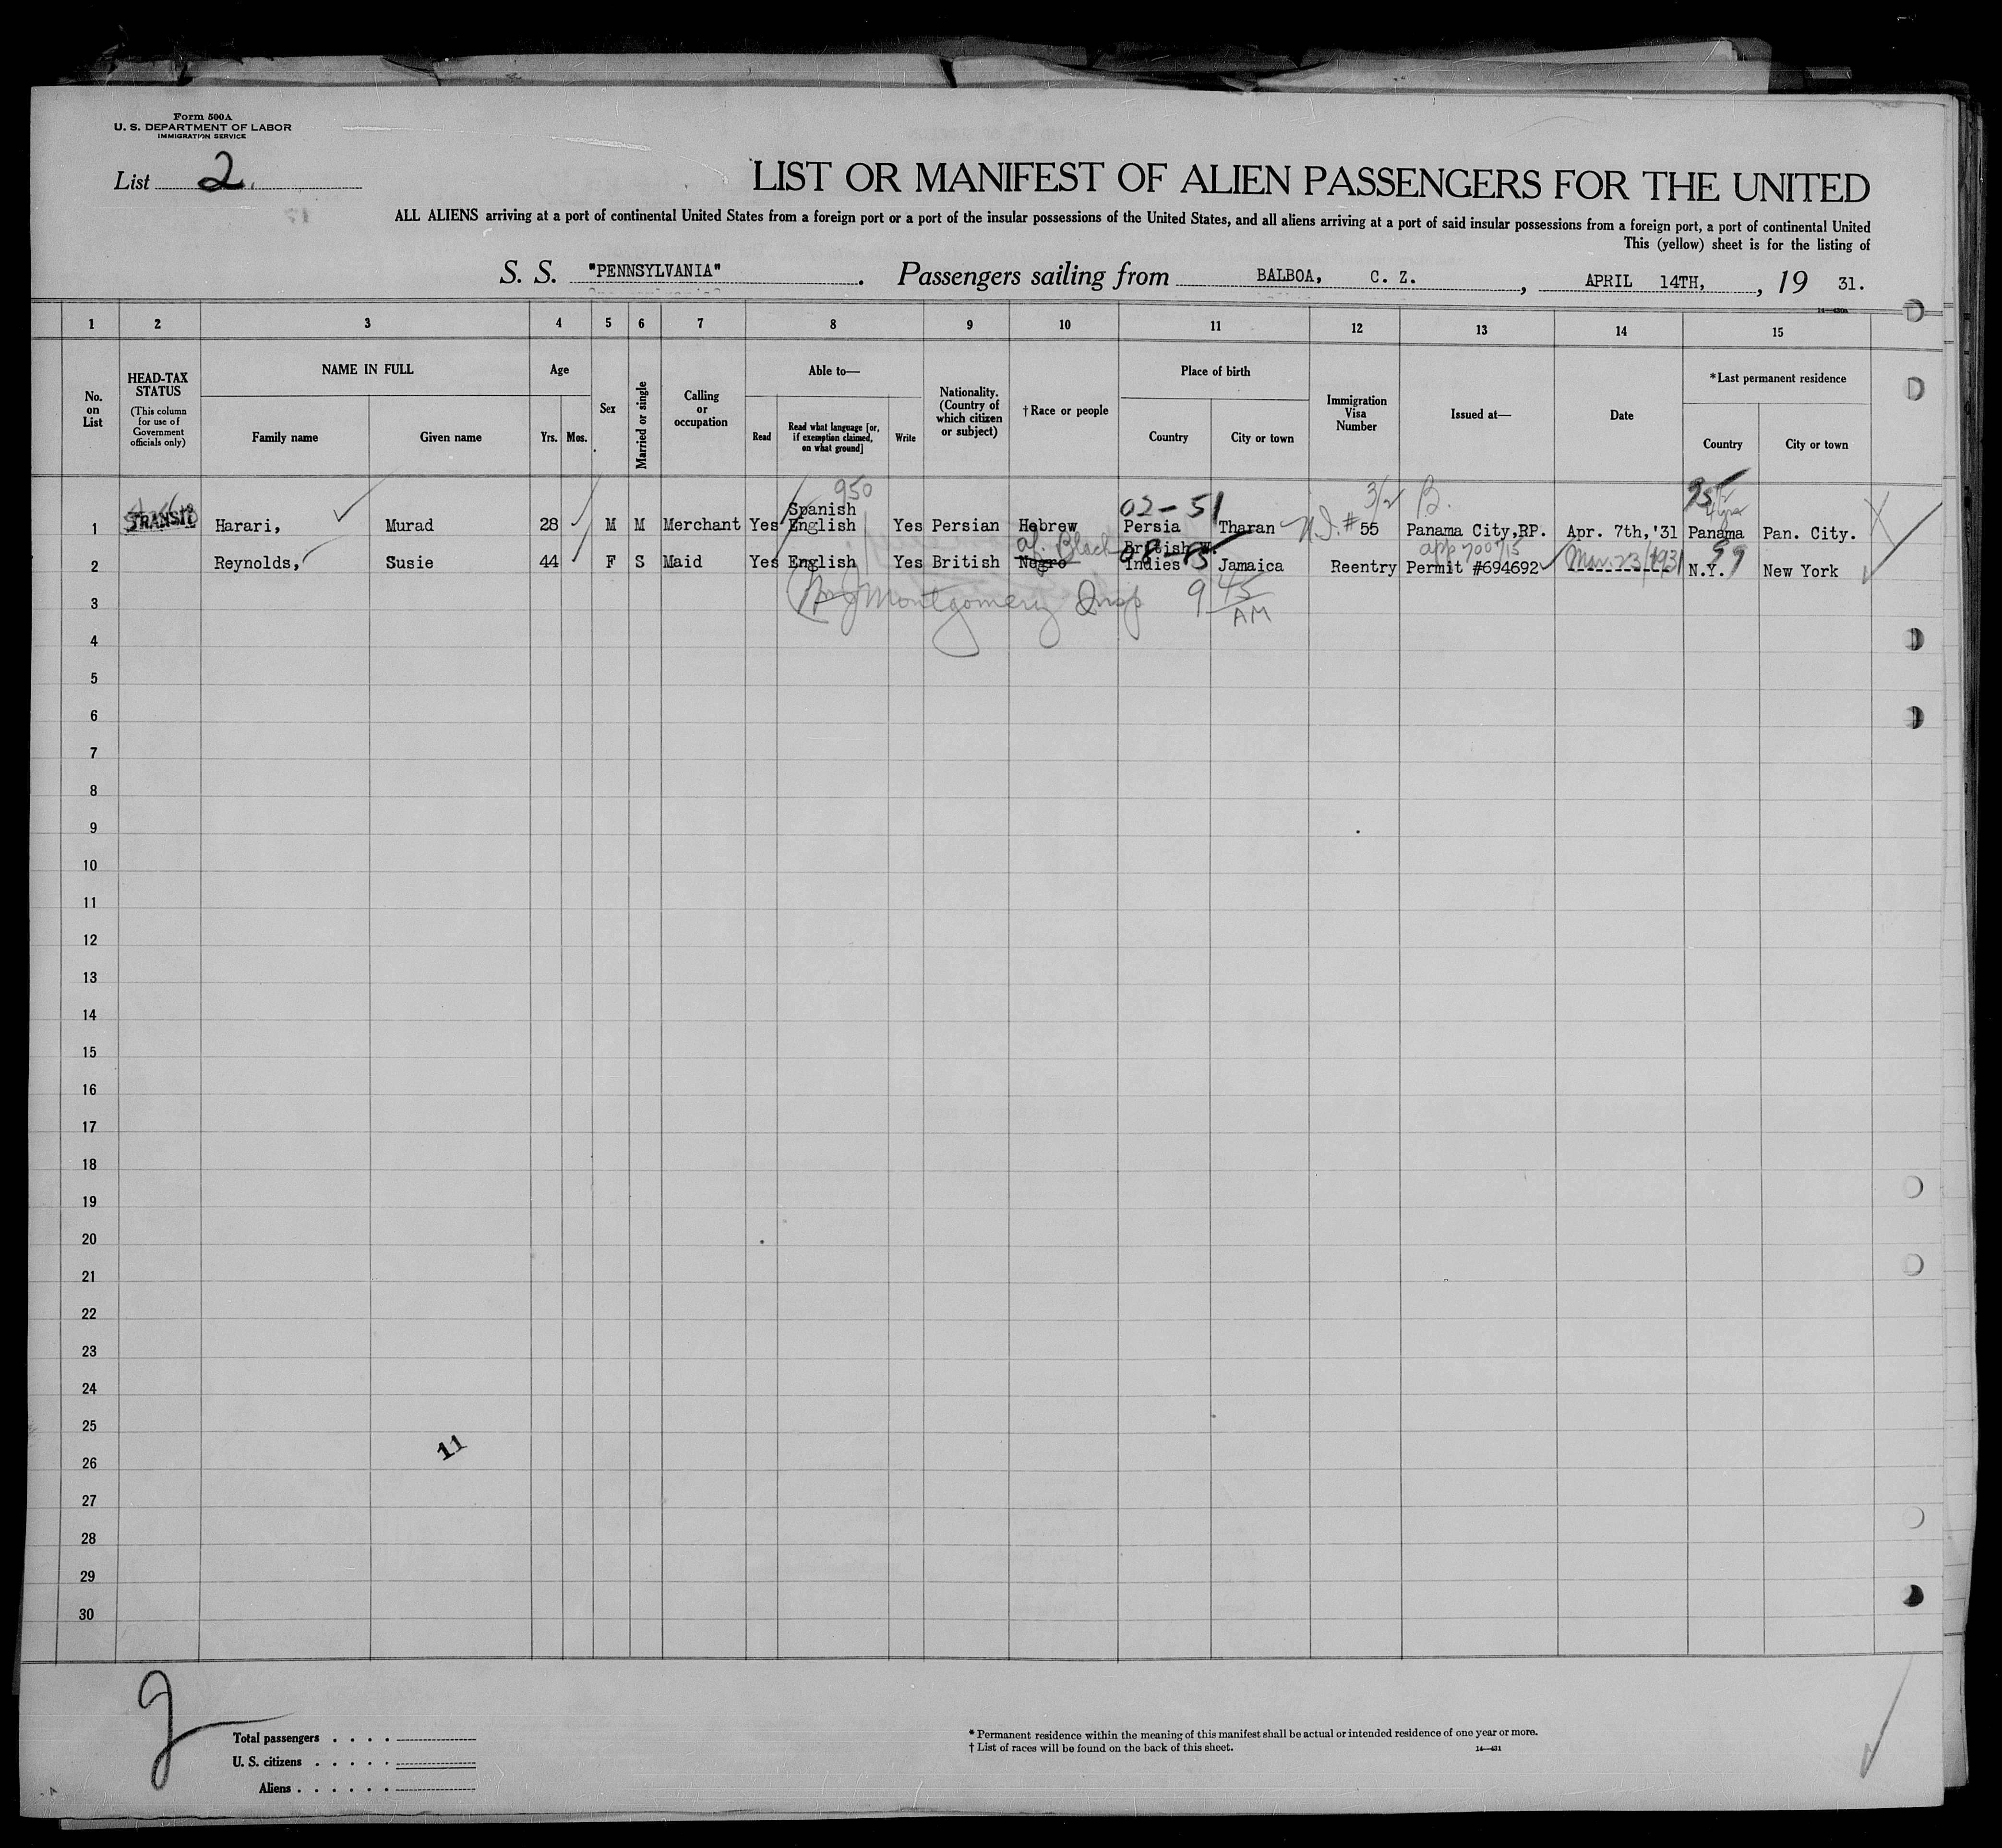 Form 500A
U. S. DEPARTMENT OF LABOR
IMMIGRATION SERVICE
List 2.
LIST OR MANIFEST OF ALIEN PASSENGERS FOR THE UNITED
ALL ALIENS arriving at a port of continental United States from a foreign port or a port of the insular possessions of the United States, and all aliens arriving at a port of said insular possessions from a foreign port, a port of continental United
This (yellow) sheet is for the listing of
S. S. "PENNSYLVANIA". Passengers sailing from BALBOA, C. Z., APRIL 14TH, , 19 31.
1 2 3 4 5 6 7 8 9 10 11 12 13 14 15
No. on List
HEAD-TAX STATUS
(This column for use of Government officials only)
NAME IN FULL
Family name Given name
Age
Yrs. Mos.
Sex
Married or single
Calling or occupation
Able to—
Read
Read what language [or, if exemption claimed, on what ground]
Write
Nationality. (Country of which citizen or subject)
†Race or people
Place of birth
Country City or town
Immigration Visa Number
Issued at—
Date
*Last permanent residence
Country City or town
950 3/2 B.
Spanish 02-51
1 TRANSIT Harari, Murad 28 M M Merchant Yes English Yes Persian Hebrew Persia Tharan #55 Panama City,RP. Apr. 7th,'31 Panama Pan. City.
Af. Black British W.
2 Reynolds, Susie 44 F S Maid Yes English Yes British Negro Indies Jamaica Reentry Permit #694692 Mar. 23/1931 N.Y. 99 New York
Montgomery Insp 9 45 AM
3
4
5
6
7
8
9
10
11
12
13
14
15
16
17
18
19
20
21
22
23
24
25
11
26
27
28
29
30
Total passengers . . . .
U. S. citizens . . . . .
Aliens . . . . . .
* Permanent residence within the meaning of this manifest shall be actual or intended residence of one year or more.
† List of races will be found on the back of this sheet.
14—431